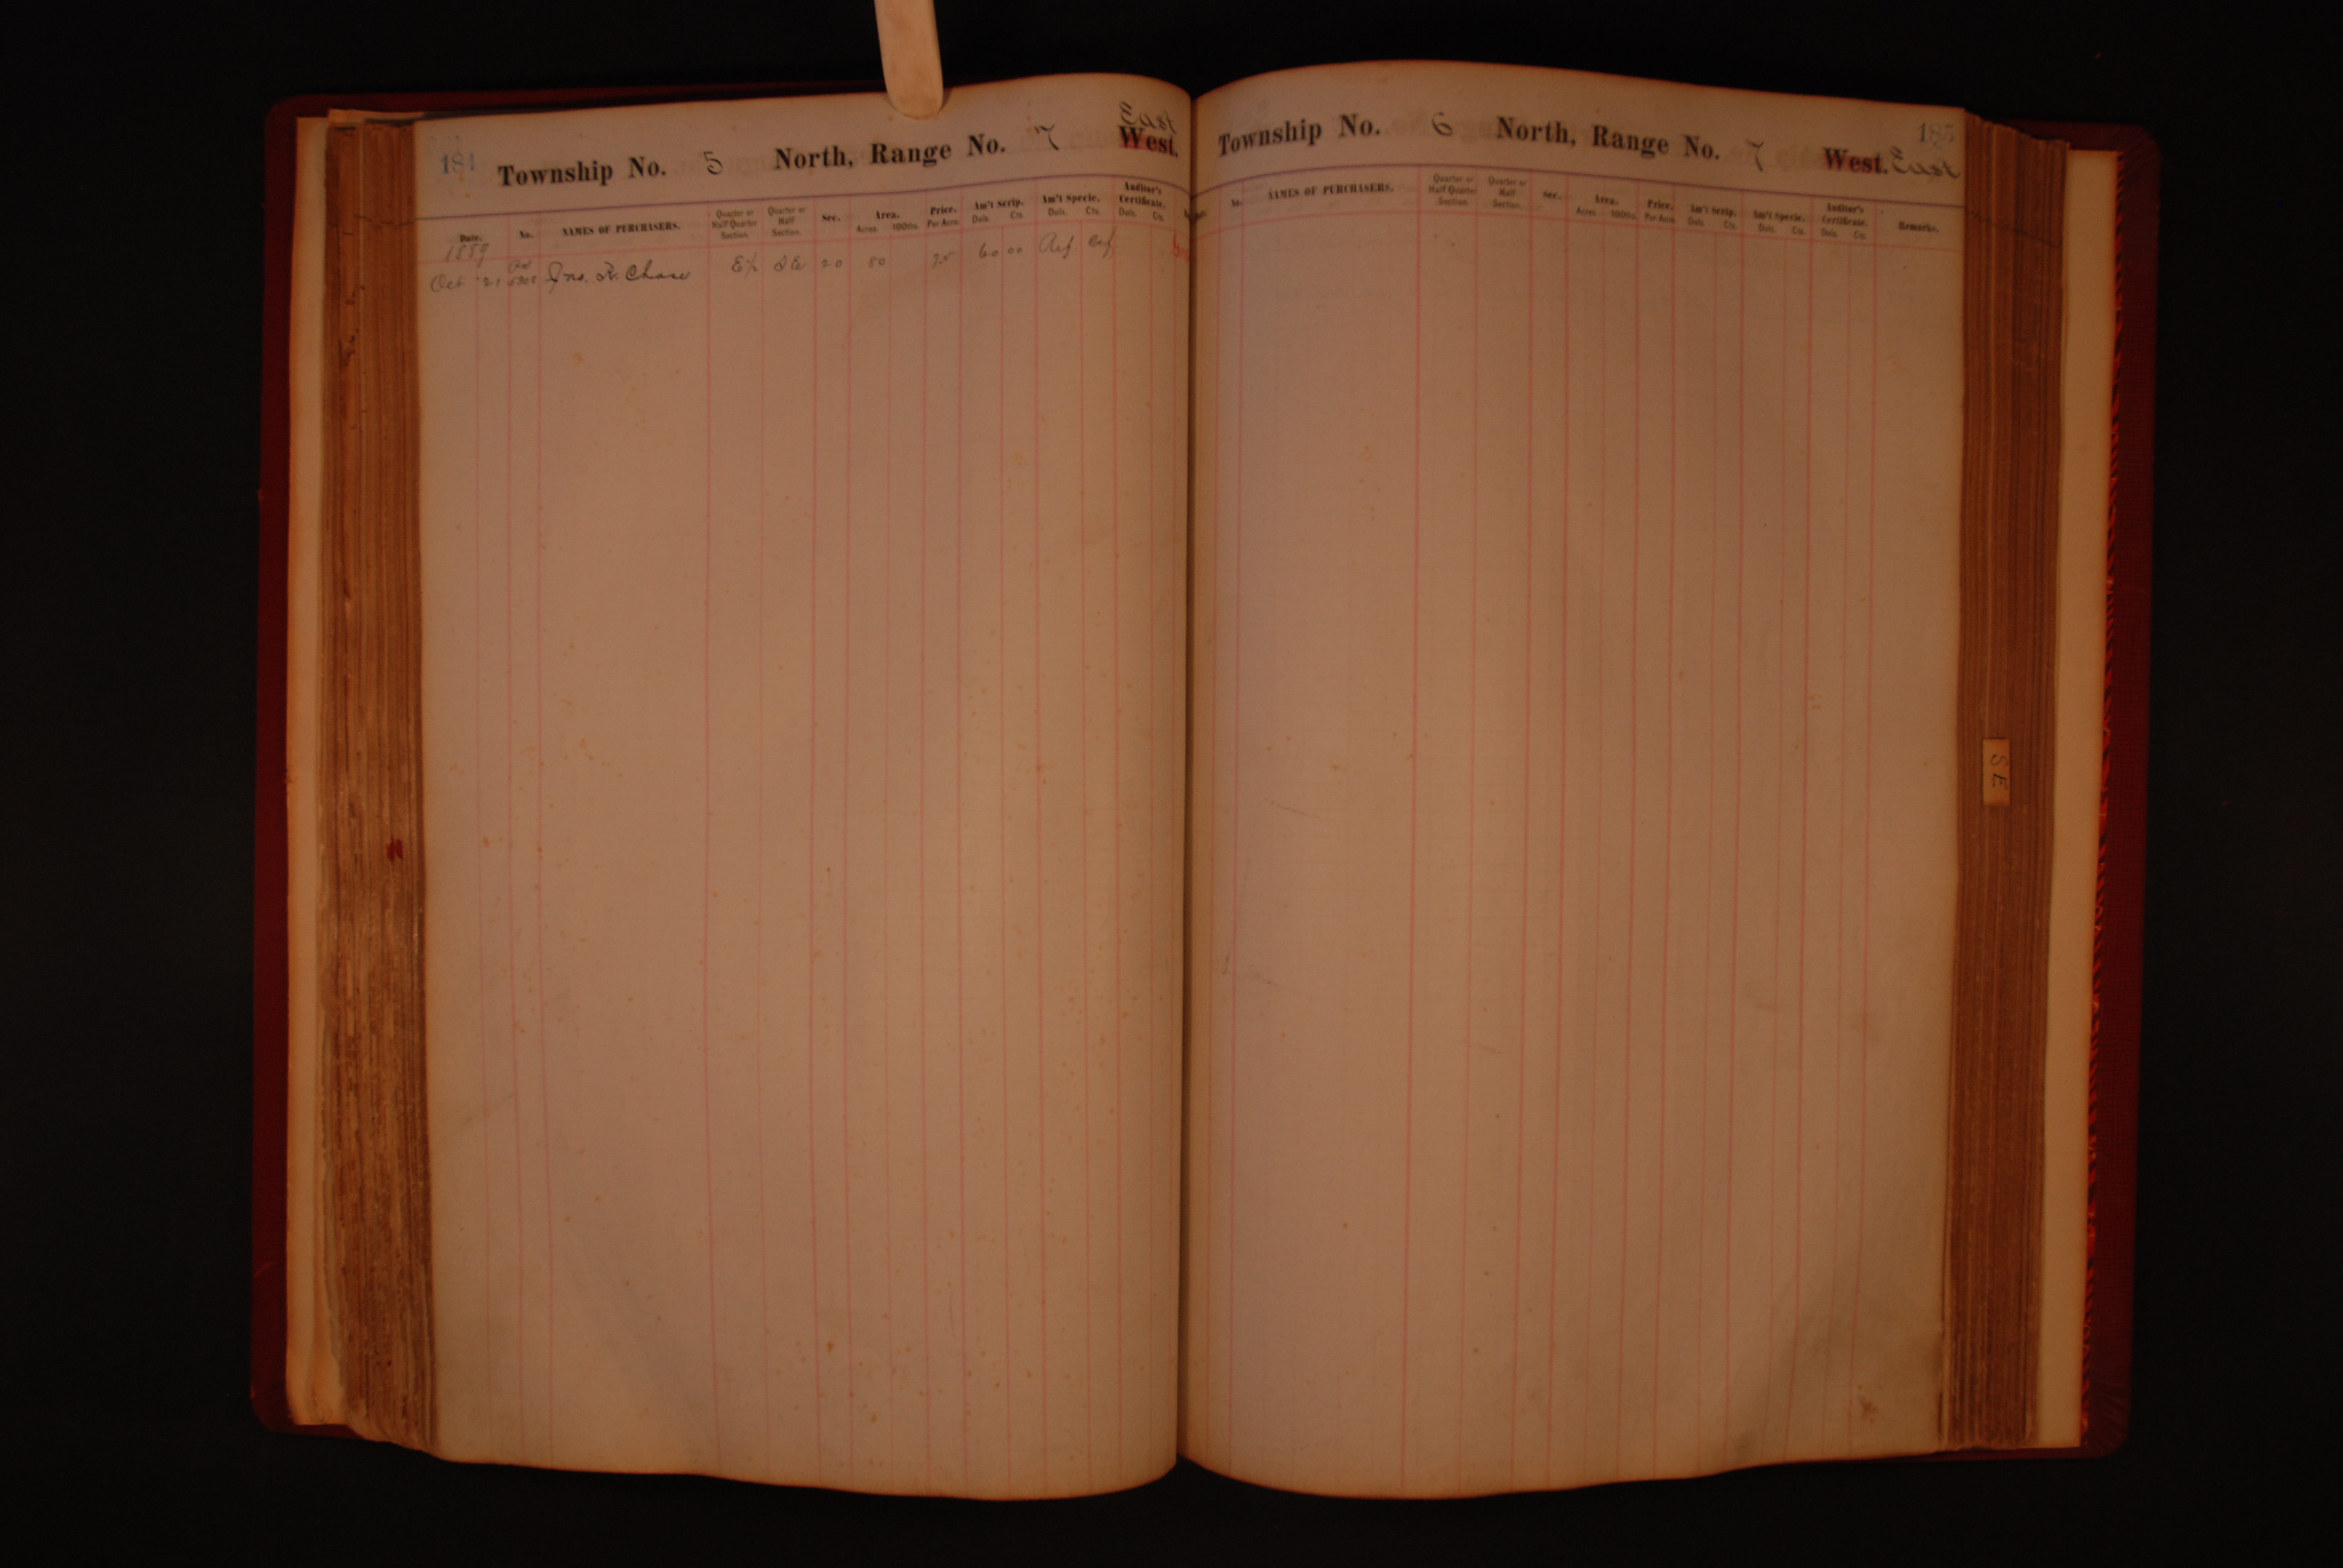 184 Township No. 5 North, Range No. 7 West. East
Date. No. NAMES OF PURCHASERS. Quarter or Half Quarter Section. Quarter or Half Section. Sec. Area. Acres 100ths. Price. Per Acre. Am't Scrip. Dols. Cts. Am't Specie. Dols. Cts. Auditor's Certificate. Dols. Cts.
1889
Oct 21 Jno. R. Chase E½ SE 20 80 75 60 00
Township No. 6 North, Range No. 7 West. East 185
No. NAMES OF PURCHASERS. Quarter or Half Quarter Section. Quarter or Half Section. Sec. Area. Acres 100ths. Price. Per Acre. Am't Scrip. Dols. Cts. Am't Specie. Dols. Cts. Auditor's Certificate. Dols. Cts. Remarks.
S E